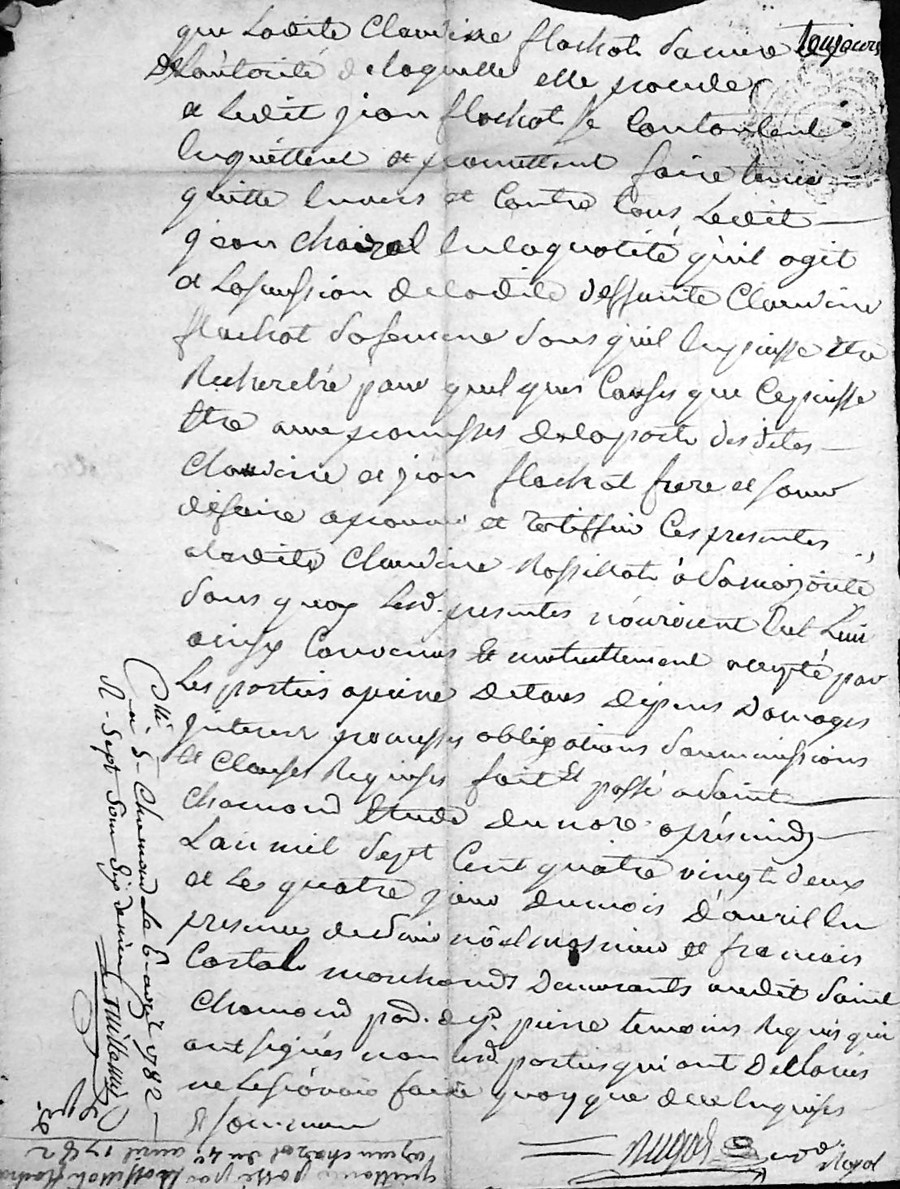 que Ladite Claudine flachat sa mere et toujours
De Lautorité de laquelle elle procede
et Ledit jean flachat se Contentent
Enquittent et promettent faire tenir
quitte Envers et Contre tous Ledit
jean Chaizal En la quotité qu'il agit
et La succession de ladite deffunte Claudine
flachat sa femme sans qu'il En puisse Etre
Recherché pour quelques Causes que Ce puisse
Etre avec promesses de la parte desdites
Claudine et jean flachat frere et soeur
de faire aprouver et Ratiffier Ces presentes
a ladite Claudine Rossillot à sa majorité
sans quoy Lesd. presentes n'auroient Eut Lieu
ainsy Convenus Et mutuellement accepté par
Les parties a peine de tous depens Domages
jnterest promesses obligations soumissions
et Clauses Requises fait Et passé a Saint
Chamond Etude du nore. apsigné
L'an mil sept Cent quatre vingt deux
et Le quatre jour du mois D'avril En
presence de noël et francois
Costal marchands Demeurants audit Saint
Chamond pierre temoins Requis qui
ont signés non Lesd. parties qui ont Dellarés
ne Le sçavoir faire quoy que de ce Enquises
Et sommées
Royal
Chamond Le 6 avril 1782
R. sept sous six deniers
quittance passé par Rossillot flachat
a jean chazal du 4e avril 1782